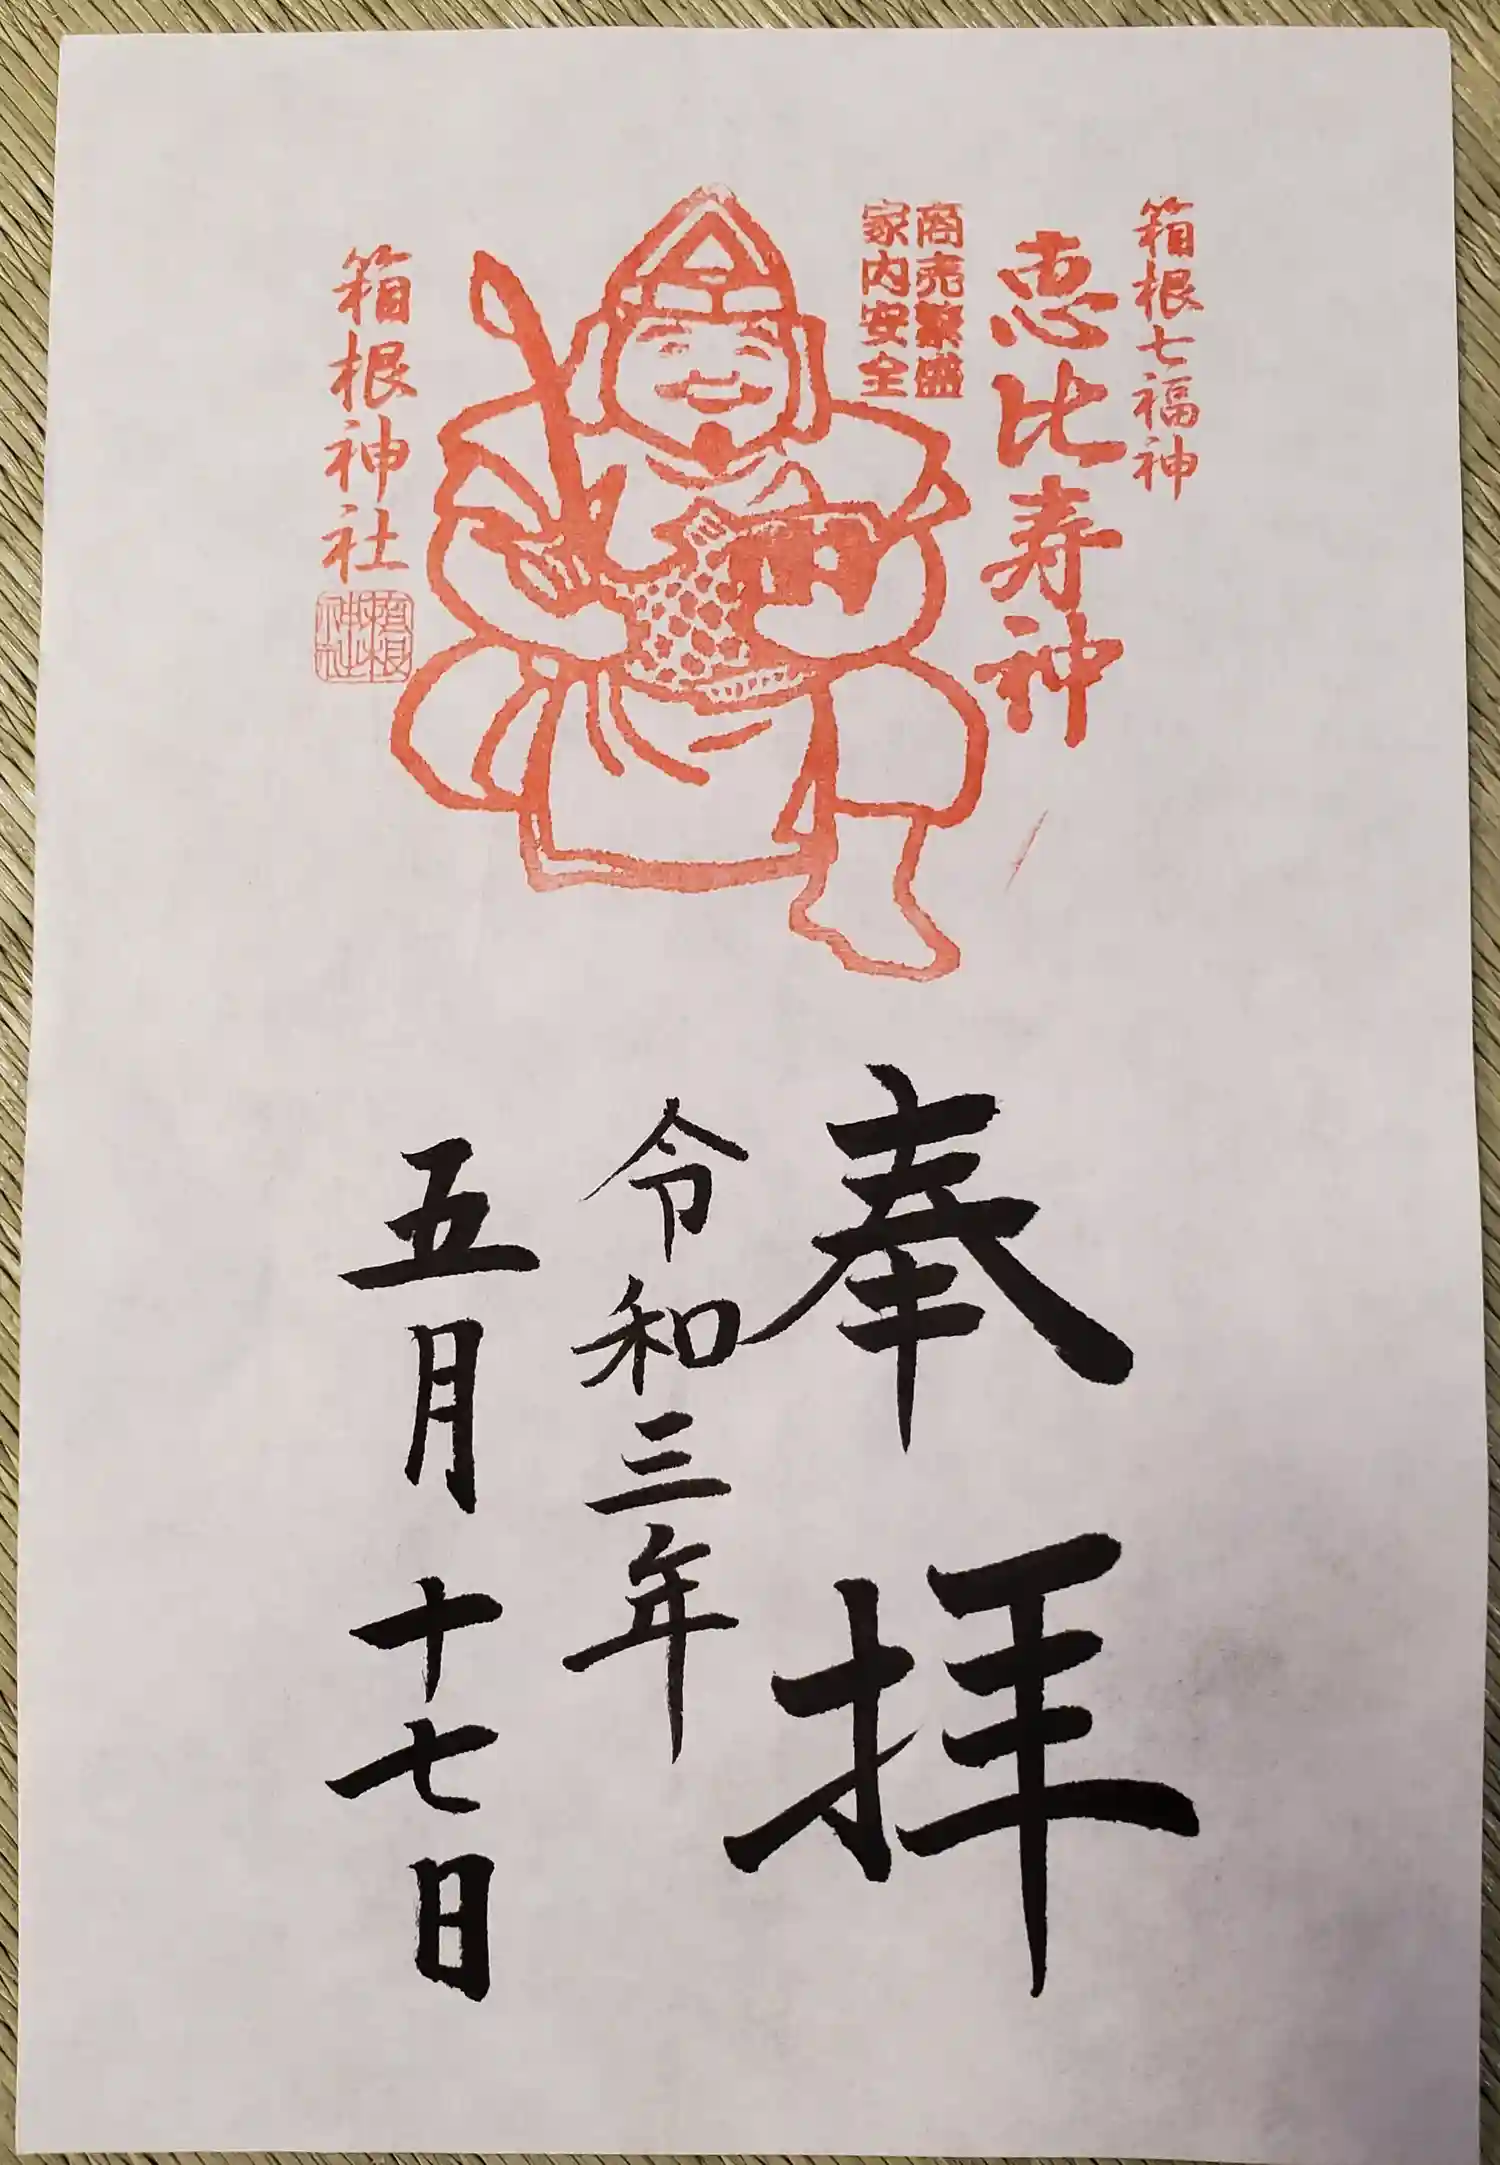 箱根七福神
恵比寿神
商売繁盛
家内安全
箱根神社
箱根
神社
奉拝
令和三年
五月十七日